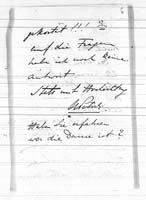 gekostet !!!
auf die Fragen
habe ich noch keine
Antwort.
Stets mit
Haben Sie erfahren
wer die Dame ist?